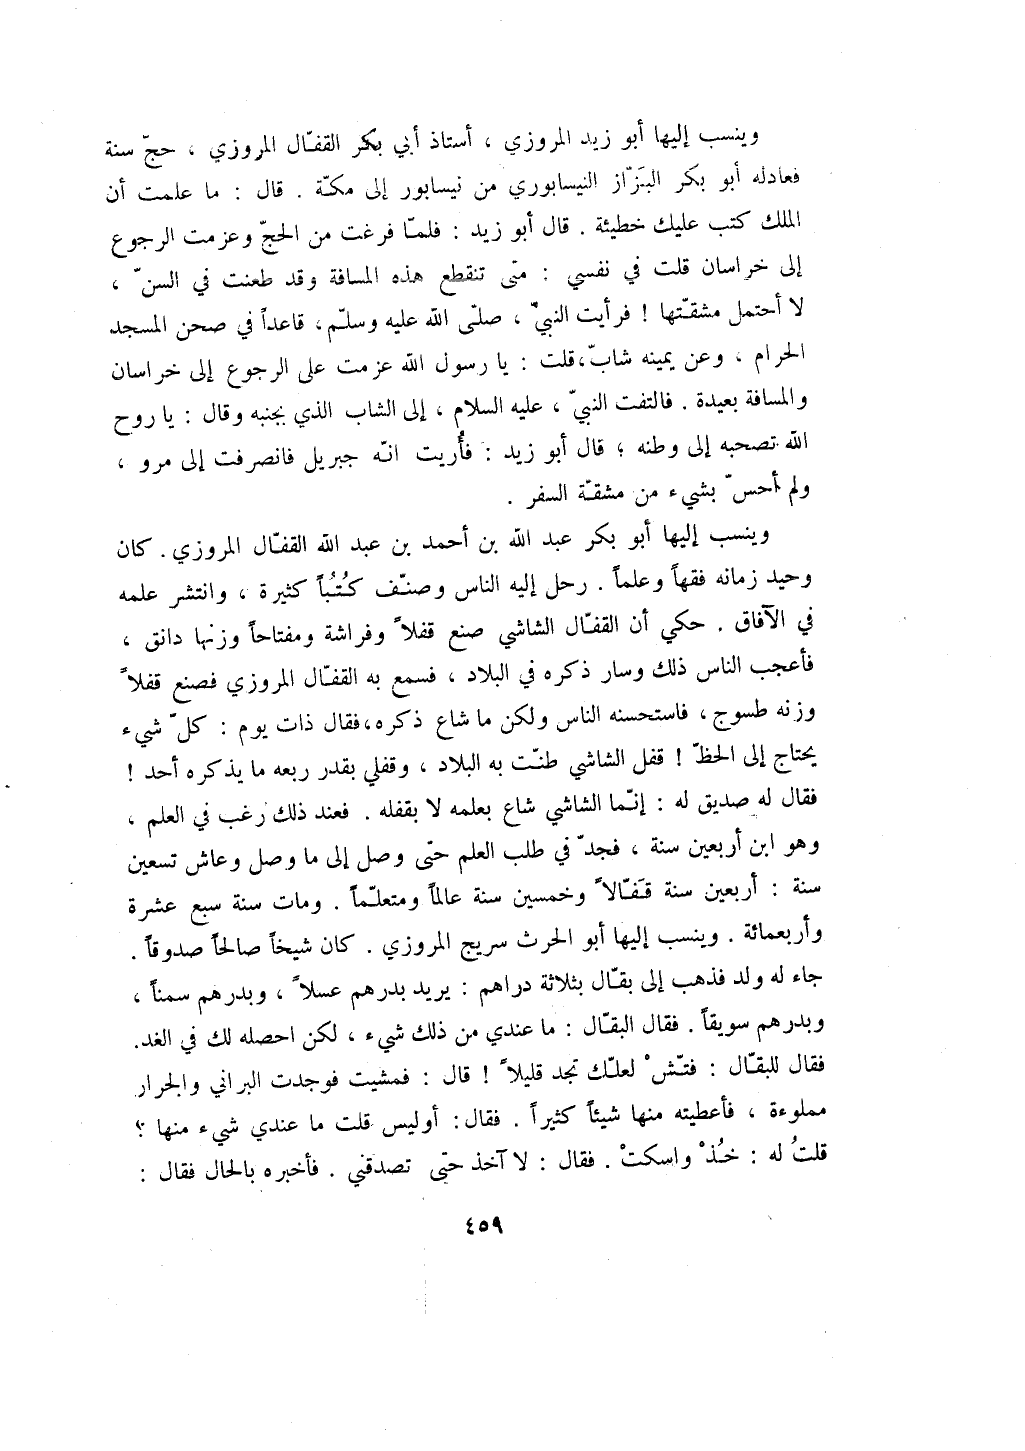 وينسب إليها أبو زيد المروزي ، أستاذ أبي بكر القفّال المروزي ، حجّ سنة
فعادله أبو بكر البَزّاز النيسابوري من نيسابور إلى مكّة . قال : ما علمت أن
الملك كتب عليك خطيئة . قال أبو زيد : فلمّا فرغت من الحجّ وعزمت الرجوع
إلى خراسان قلت في نفسي : متى تنقطع هذه المسافة وقد طعنت في السنّ ،
لا أحتمل مشقّتها ! فرأيت النبيّ ، صلّى الله عليه وسلّم، قاعداً في صحن المسجد
الحرام ، وعن يمينه شابّ،قلت : يا رسول الله عزمت على الرجوع إلى خراسان
والمسافة بعيدة . فالتفت النبيّ ، عليه السلام ، إلى الشاب الذي بجنبه وقال : يا روح
الله تصحبه إلى وطنه ؛ قال أبو زيد : فأُريت انّه جبريل فانصرفت إلى مرو ،
ولم أحسّ بشيء من مشقّة السفر .
وينسب إليها أبو بكر عبد الله بن أحمد بن عبد الله القفّال المروزي . كان
وحيد زمانه فقهاً وعلماً . رحل إليه الناس وصنّف كُتُباً كثيرة ، وانتشر علمه
في الآفاق . حكي أن القفّال الشاشي صنع قفلاً وفراشة ومفتاحاً وزنها دانق ،
فأعجب الناس ذلك وسار ذكره في البلاد ، فسمع به القفّال المروزي فصنع قفلاً
وزنه طسوج ، فاستحسنه الناس ولكن ما شاع ذكره،فقال ذات يوم : كلّ شيء
يحتاج إلى الحظّ ! قفل الشاشي طنّت به البلاد ، وقفلي بقدر ربعه ما يذكره أحد !
فقال له صديق له : إنّما الشاشي شاع بعلمه لا بقفله . فعند ذلك رغب في العلم ،
وهو ابن أربعين سنة ، فجدّ في طلب العلم حتّى وصل إلى ما وصل وعاش تسعين
سنة : أربعين سنة قَفّالاً وخمسين سنة عالماً ومتعلّماً . ومات سنة سبع عشرة
وأربعمائة . وينسب إليها أبو الحرث سريج المروزي . كان شيخاً صالحاً صدوقاً .
جاء له ولد فذهب إلى بقّال بثلاثة دراهم : يريد بدرهم عسلاً ، وبدرهم سمناً ،
وبدرهم سويقاً . فقال البقّال : ما عندي من ذلك شيء ، لكن احصله لك في الغد.
فقال للبقّال : فتّشْ لعلّك تجد قليلاً ! قال : فمشيت فوجدت البراني والجرار
مملوءة ، فأعطيته منها شيئاً كثيراً . فقال: أوليس قلت ما عندي شيء منها ؟
قلتُ له : خُذْ واسكتْ . فقال : لا آخذ حتّى تصدقني . فأخبره بالحال فقال :
٤٥٩